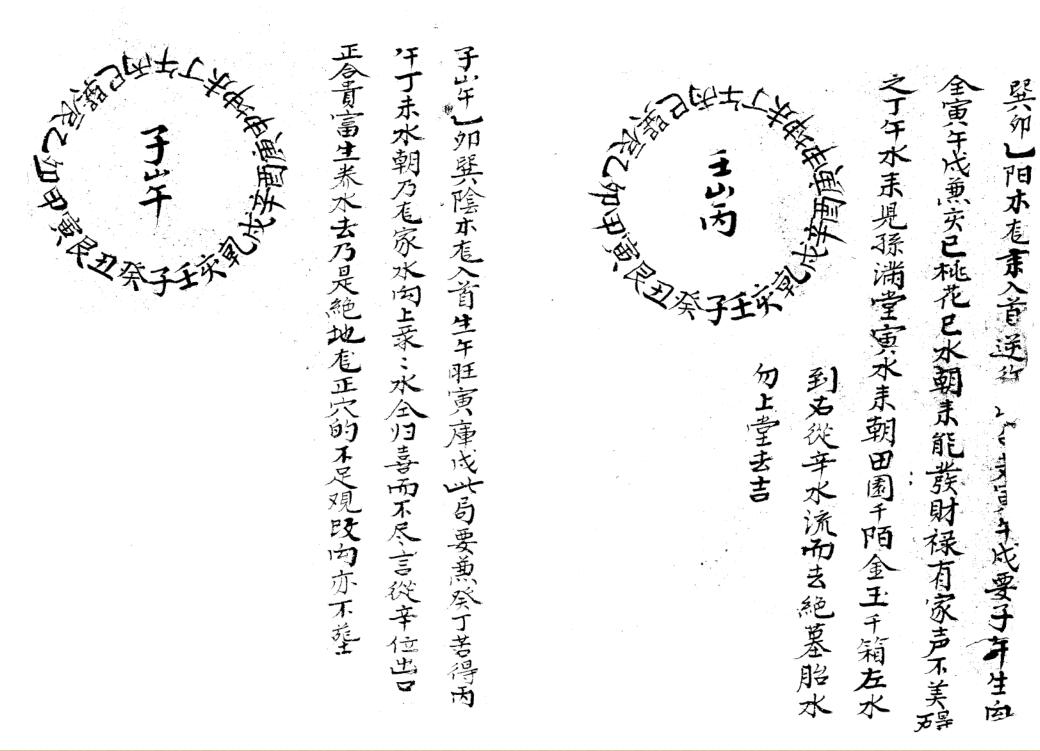 巽卯乙阳木龙耒入首逆行 寅午戌要子午生向
全寅午戌兼亥巳桃花巳水朝耒能發財禄有家声不美碍
之丁午水耒見孫满堂寅水耒朝田園千陌金玉千箱左水
到右從辛水流而去絶墓胎水
勿上堂去吉
壬山丙
子壬亥乾戌辛酉庚申坤未丁午丙巳巽辰乙卯甲寅艮丑癸
子山午乙卯巽陰木龙入首生午旺寅庫戌此局要兼癸丁若得丙
午丁未水朝乃龙家水向上来:水全归喜而不尽言從辛位出口
正合貴富生养水去乃是絶地龙正穴的不足观改向亦不葬
子山午
子壬亥乾戌辛酉庚申坤未丁午丙巳巽辰乙卯甲寅艮丑癸